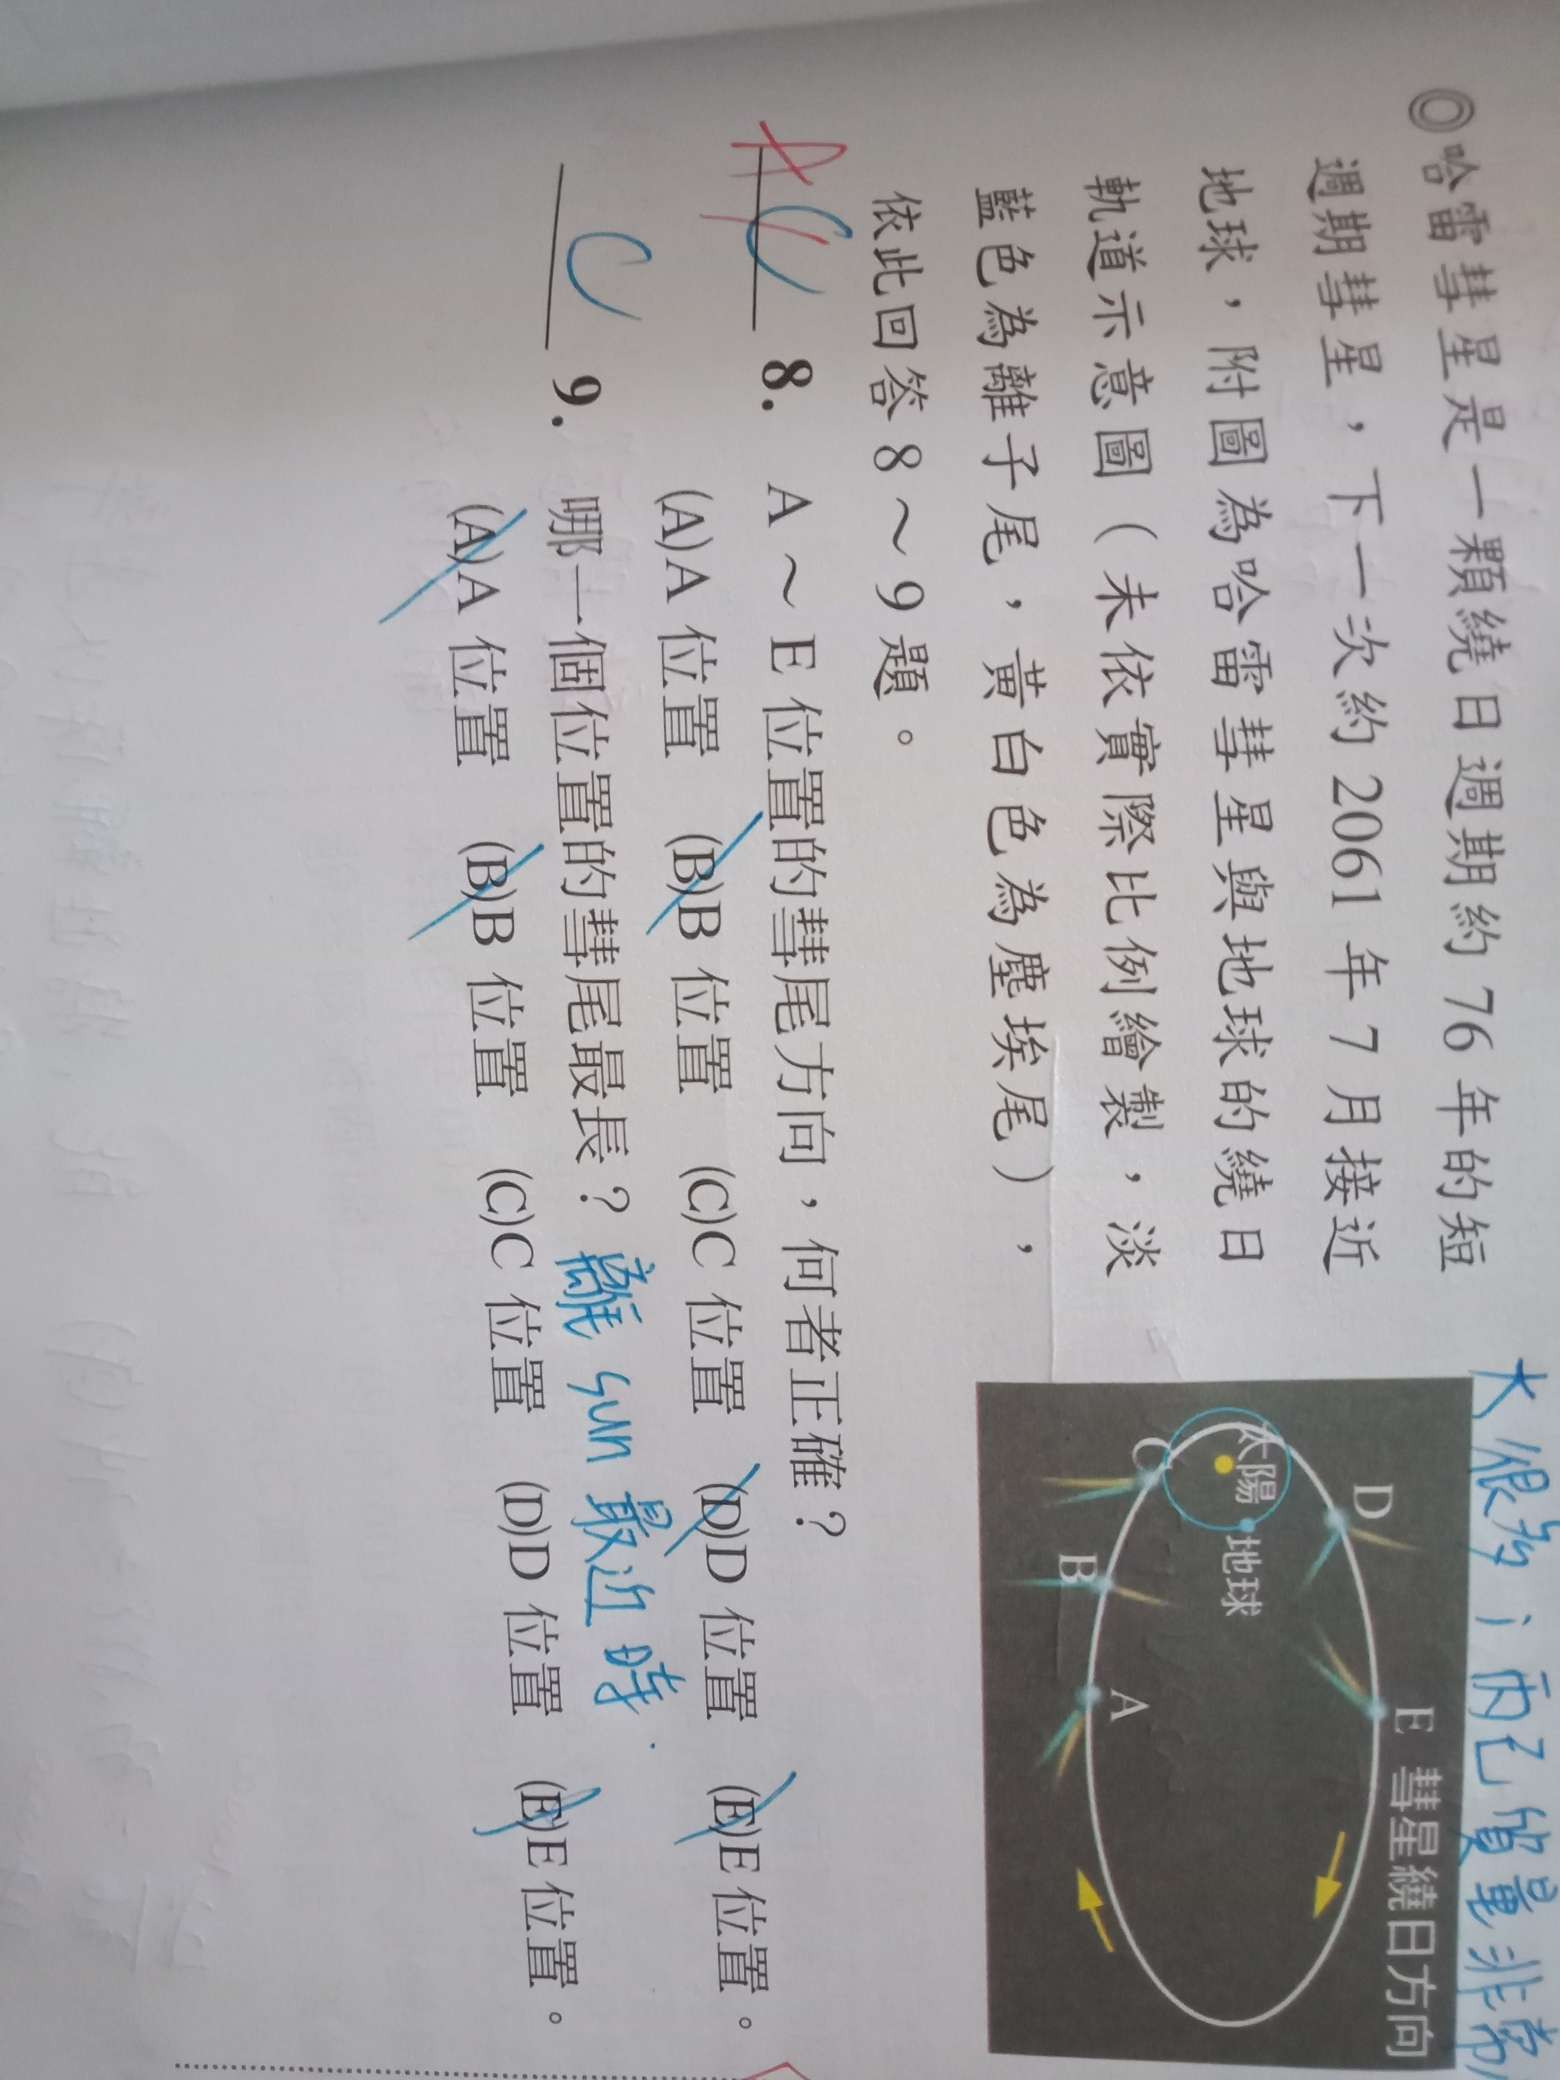 大很多；而已質量非常
◎哈雷彗星是一顆繞日週期約 76 年的短
週期彗星，下一次約 2061 年 7 月接近
地球，附圖為哈雷彗星與地球的繞日
軌道示意圖（未依實際比例繪製，淡
藍色為離子尾，黃白色為塵埃尾），
依此回答 8～9 題。
D
E 彗星繞日方向
太陽
地球
C
B
A
A C 8. A～E 位置的彗尾方向，何者正確？
(A)A 位置 (B)B 位置 (C)C 位置 (D)D 位置 (E)E 位置。
C 9. 哪一個位置的彗尾最長？ 離 sun 最近時.
(A)A 位置 (B)B 位置 (C)C 位置 (D)D 位置 (E)E 位置。